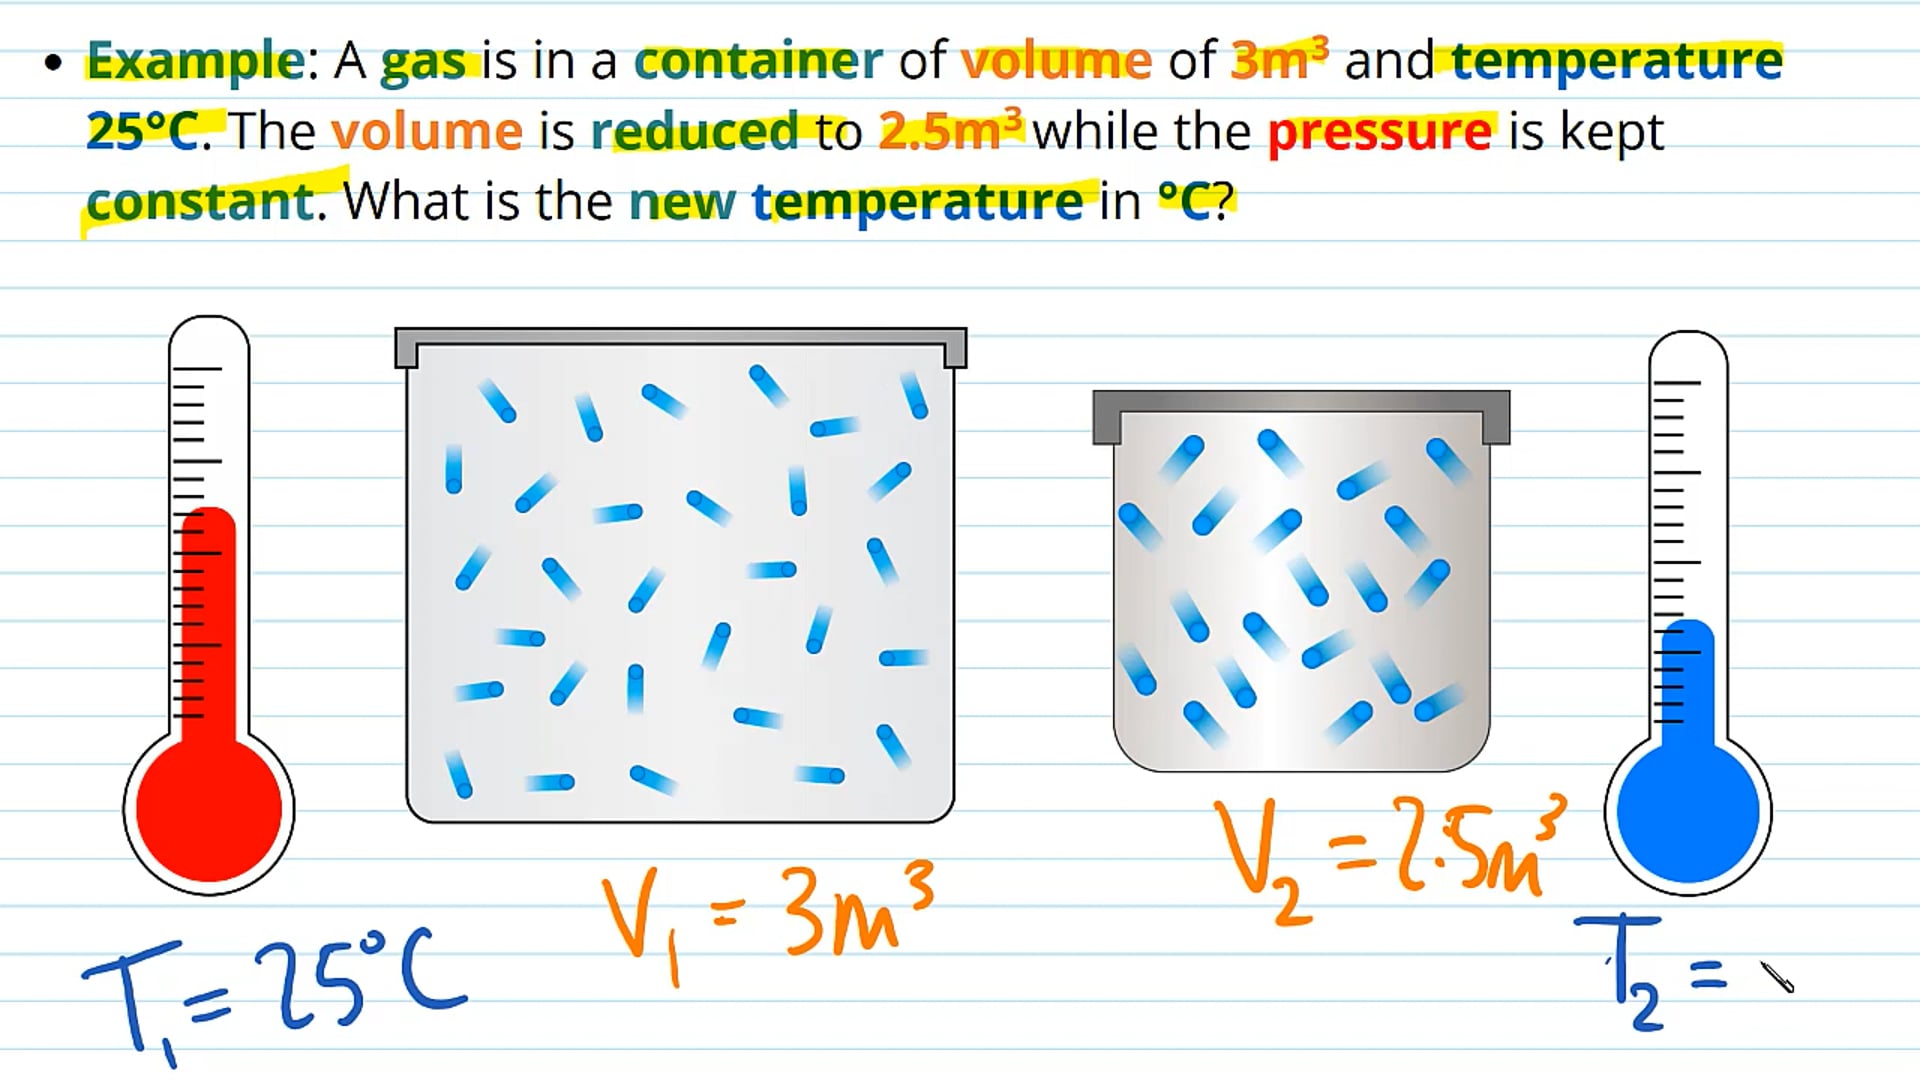 • Example: A gas is in a container of volume of 3m³ and temperature
25°C. The volume is reduced to 2.5m³ while the pressure is kept
constant. What is the new temperature in °C?
V₂ = 2.5m³
V₁ = 3m³
T₁ = 25°C
T₂ =